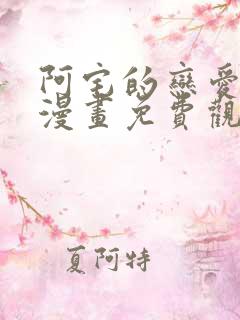 阿宅的戀愛
漫畫免費觀
夏阿特